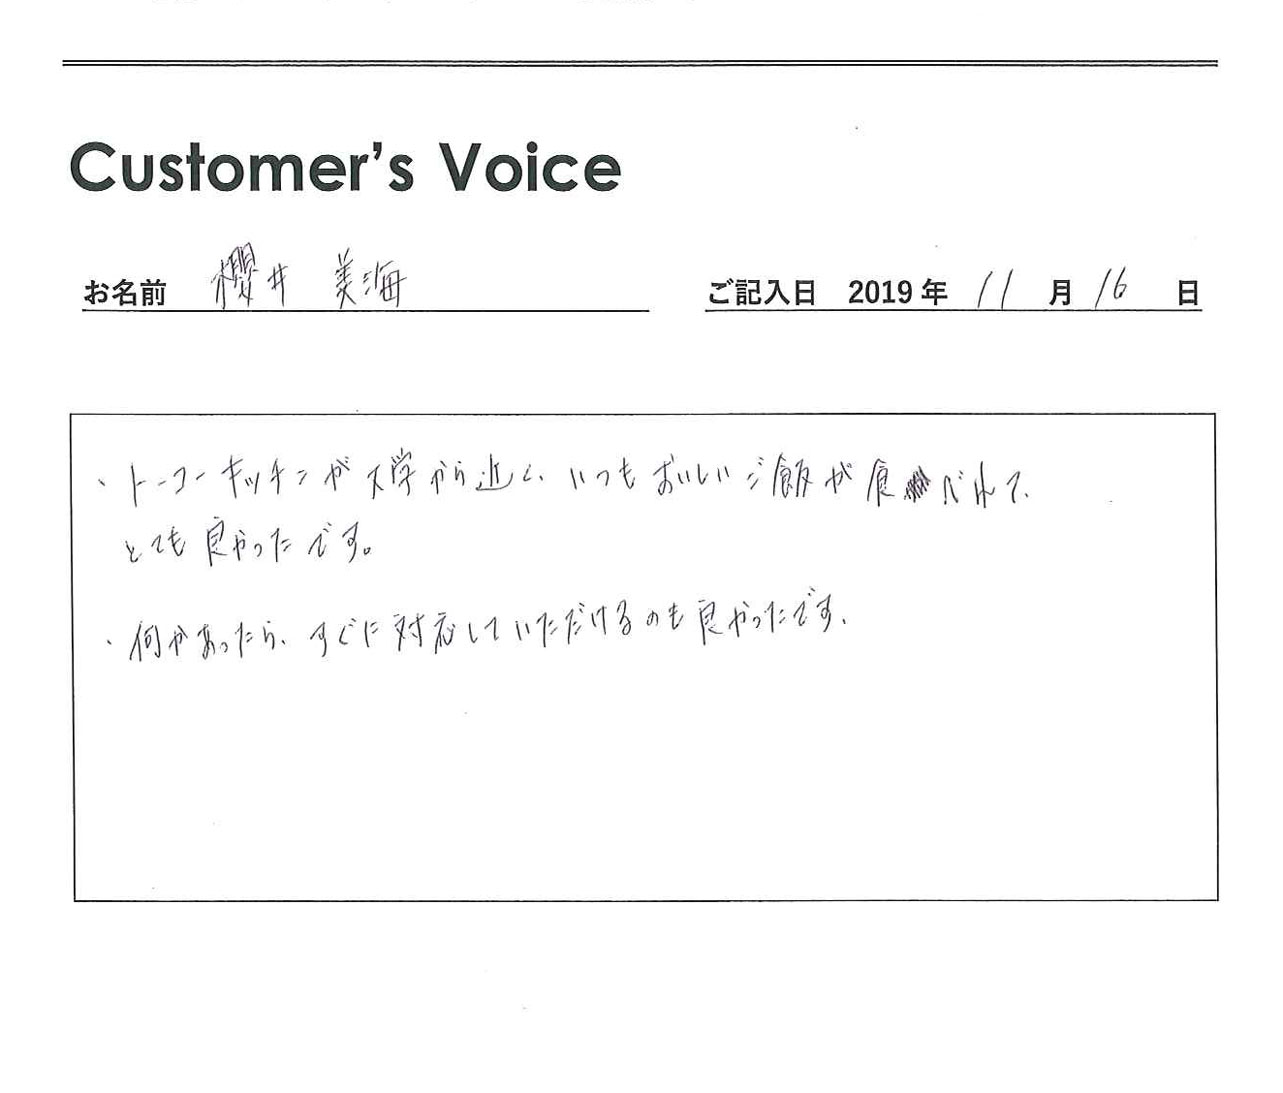 Customer's Voice
お名前 櫻井 美海 ご記入日 2019年 11月 16日
・トーコーキッチンが大学から近く、いつもおいしいご飯が食べれて、
とても良かったです。
・何かあったら、すぐに対応していただけるのも良かったです。